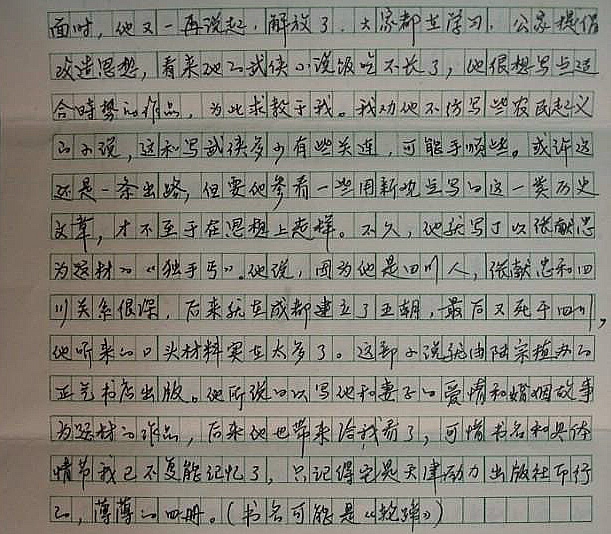 面时，他又一再说起，解放了，大家都在学习，公家提倡
改造思想，看来他的武侠小说饭吃不长了，他很想写点适
合时势的作品，为此求教于我。我劝他不仿写些农民起义
的小说，这和写武侠多少有些关连，可能手顺些。或许这
还是一条出路，但要他参看一些用新观点写的这一类历史
文章，才不至于在思想上走样。不久，他就写了以张献忠
为题材的《独手丐》。他说，因为他是四川人，张献忠和四
川关系很深，后来就在成都建立了王朝，最后又死于四川，
他听来的口头材料实在太多了。这部小说就由陆宗植办的
正气书店出版。他所说的以写他和妻子的爱情和婚姻故事
为题材的作品，后来他也带来给我看了，可惜书名和具体
情节我已不复能记忆了，只记得它是天津励力出版社印行
的，薄薄的四册。（书名可能是《轮蹄》）